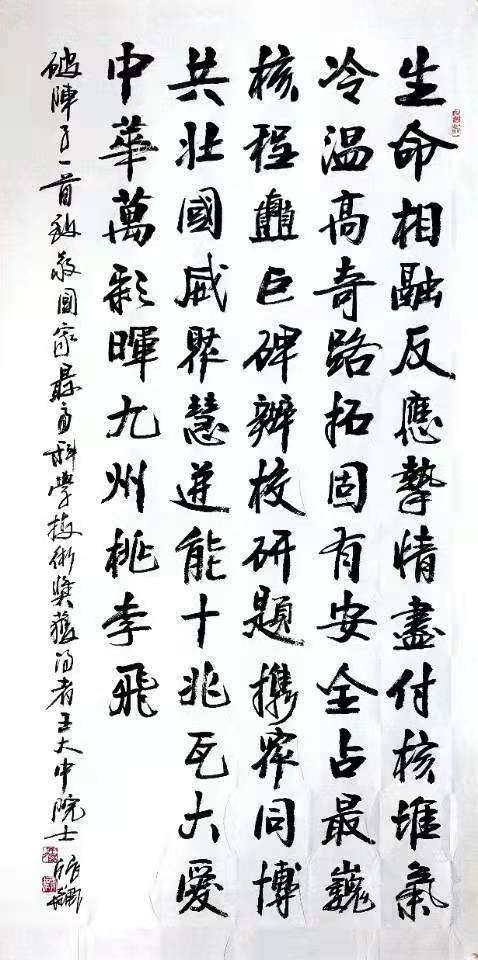 生命相融反應摯情盡付核堆氣
冷温高奇路拓固有安全占最巍
核程矗巨碑辦校研題攜寀同博
共壯國威聚慧迸能十兆瓦大愛
中華萬彩暉九州桃李飛
破陣子一首致敬國家最高科學技術獎獲得者王大中院士